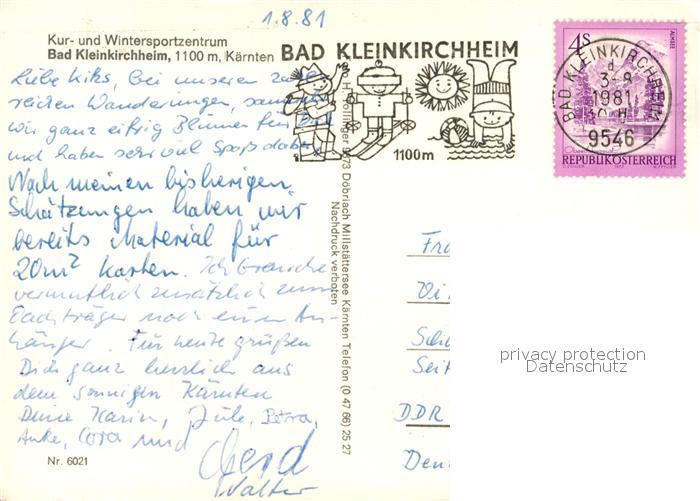 1.8.81
Kur- und Wintersportzentrum
Bad Kleinkirchheim, 1100 m, Kärnten
BAD KLEINKIRCHHEIM
1100m
4S
ALMSEE
BAD KLEINKIRCHHEIM
1981
9546
REPUBLIK ÖSTERREICH
Liebe Kiks, bei unseren zahl-
reichen Wanderungen, sammeln
wir ganz eifrig Blumen für Dich
und haben sehr viel Spaß dabei.
Nach meinen bisherigen
Schätzungen haben wir
bereits Material für
20m² Karten. Ich brauche
vermutlich zusätzlich zum
Dachträger noch einen An-
hänger. Für heute grüßen
Dich ganz herzlich aus
dem sonnigen Kärnten
Deine Karin, Jule, Petra,
Anke, Cora und
Gerd
Walter
Döbriach Millstättersee Kärnten Telefon (0 47 66) 25 27
Nachdruck verboten
Fra
Sch
Seit
DDR
Deu
privacy protection
Datenschutz
Nr. 6021